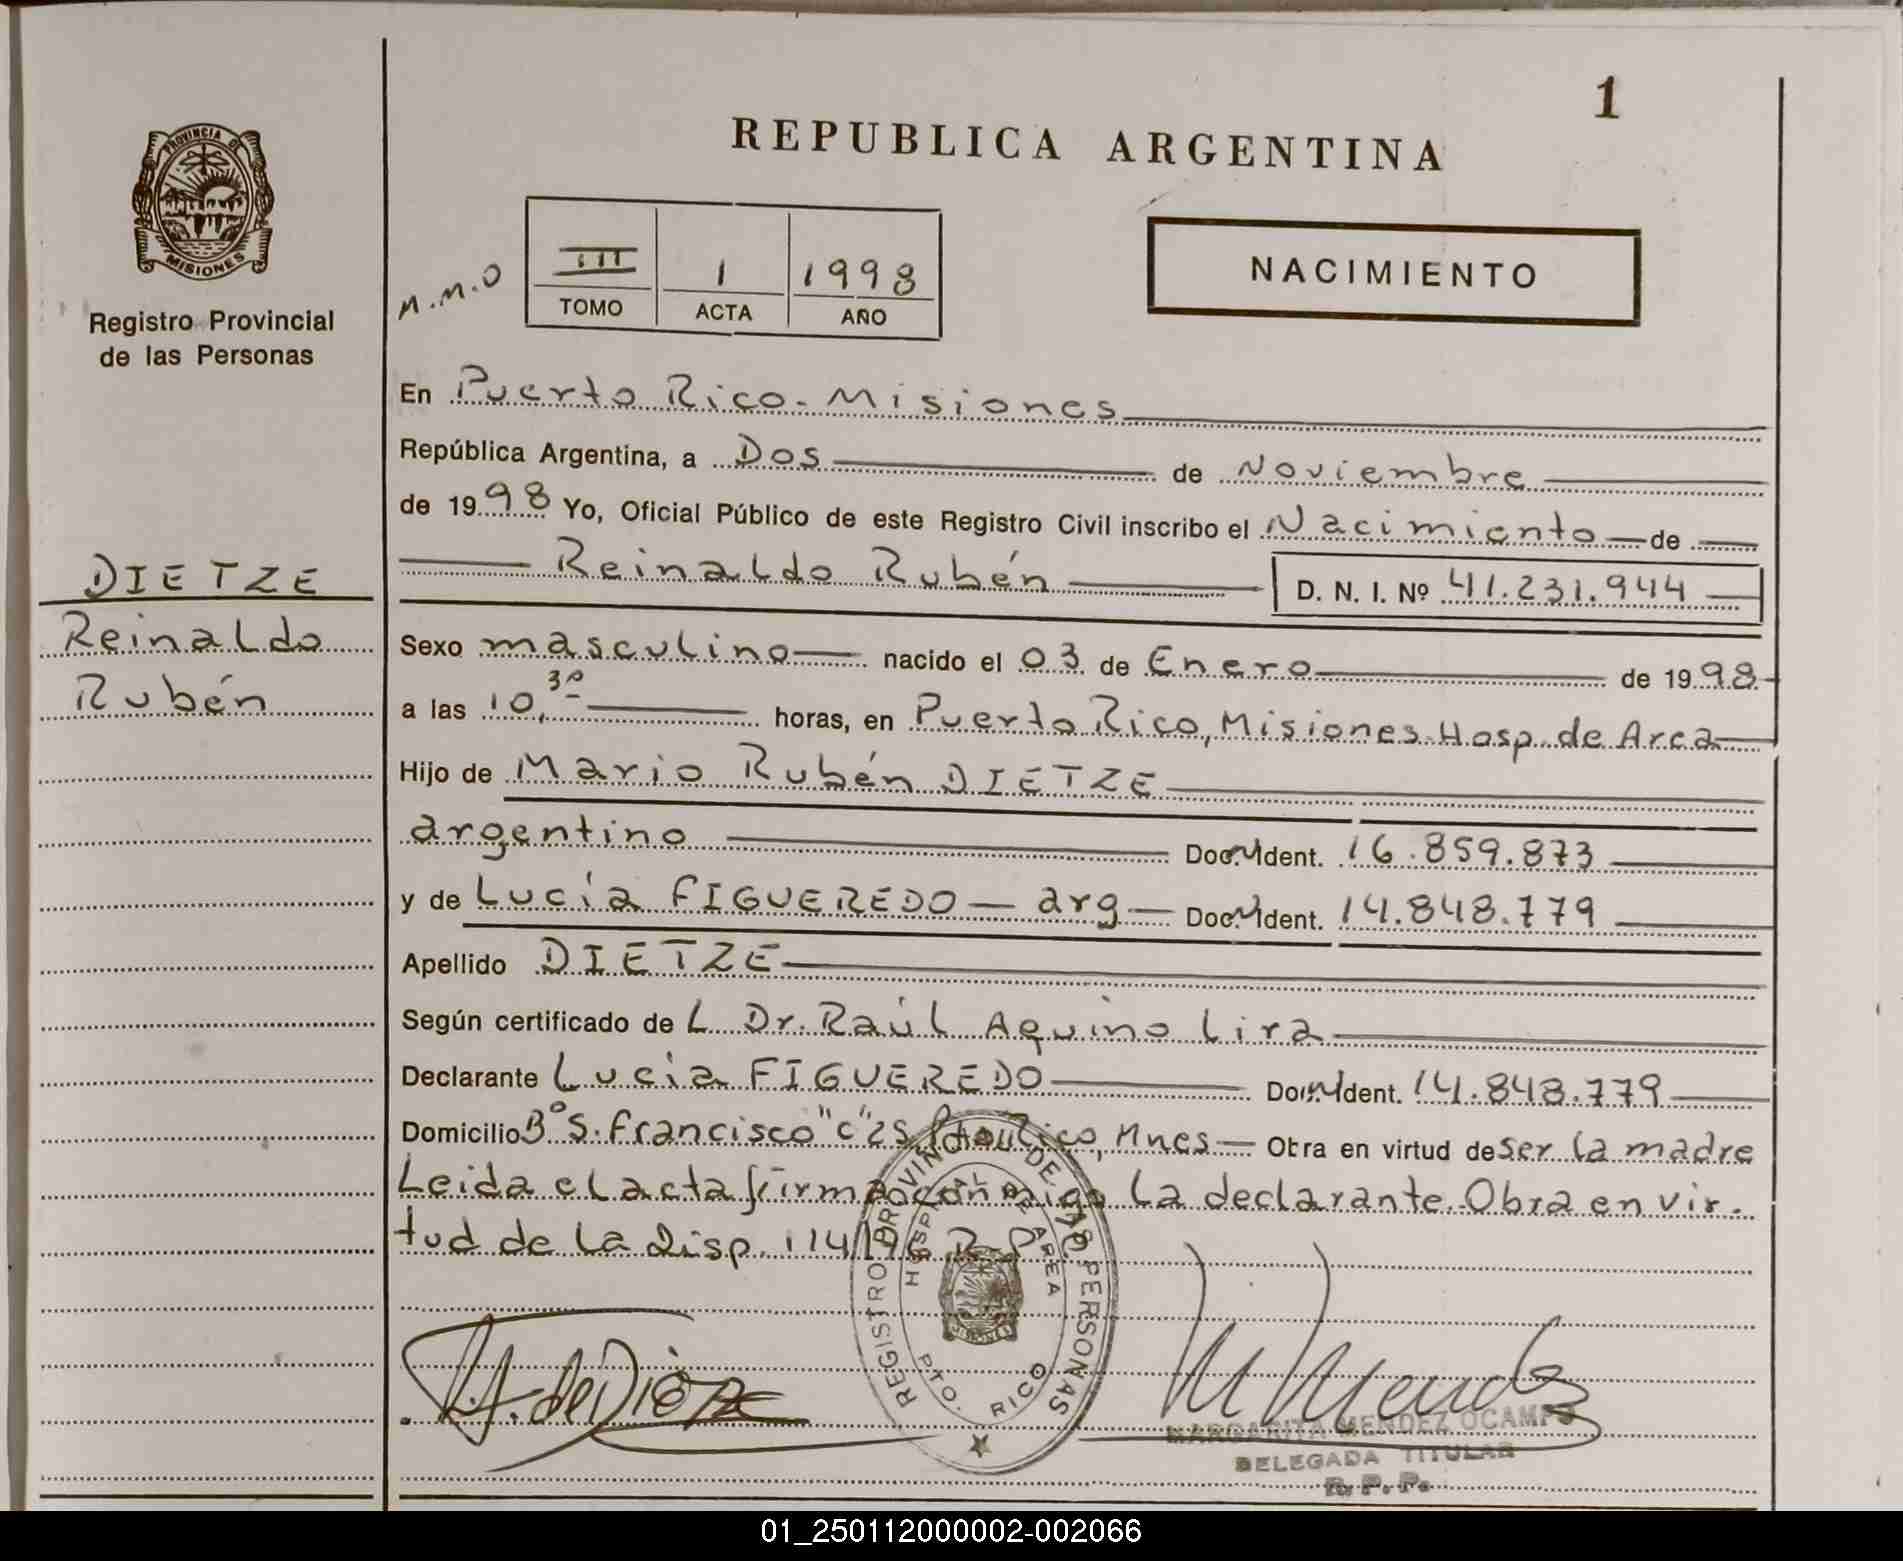 1
REPUBLICA ARGENTINA
PROVINCIA DE
MISIONES
Registro Provincial
de las Personas
M.M.O
III 1 1998
TOMO ACTA AÑO
NACIMIENTO
En Puerto Rico - Misiones
República Argentina, a Dos de Noviembre
de 1998 Yo, Oficial Público de este Registro Civil inscribo el Nacimiento de
Reinaldo Rubén D. N. I. Nº 41.231.944
DIETZE
Reinaldo
Rubén
Sexo masculino nacido el 03 de Enero de 1998
a las 10,30 horas, en Puerto Rico, Misiones-Hosp. de Area
Hijo de Mario Rubén DIETZE
argentino Doc. Ident. 16.859.873
y de Lucía FIGUEREDO - arg - Doc. Ident. 14.848.779
Apellido DIETZE
Según certificado de L Dr. Raúl Aquino Lira
Declarante Lucia FIGUEREDO Doc. Ident. 14.848.779
Domicilio Bº S. Francisco "C" 25 Pto. Rico, Mnes - Obra en virtud de ser la madre
Leida el acta firma con migo la declarante. Obra en vir-
tud de la Disp. 114/96 R.P.P.
REGISTRO PROVINCIAL DE LAS PERSONAS
HOSPITAL DE AREA
MISIONES
PTO. RICO
MARGARITA MENDEZ OCAMPO
DELEGADA TITULAR
R. P. P.
01_250112000002-002066